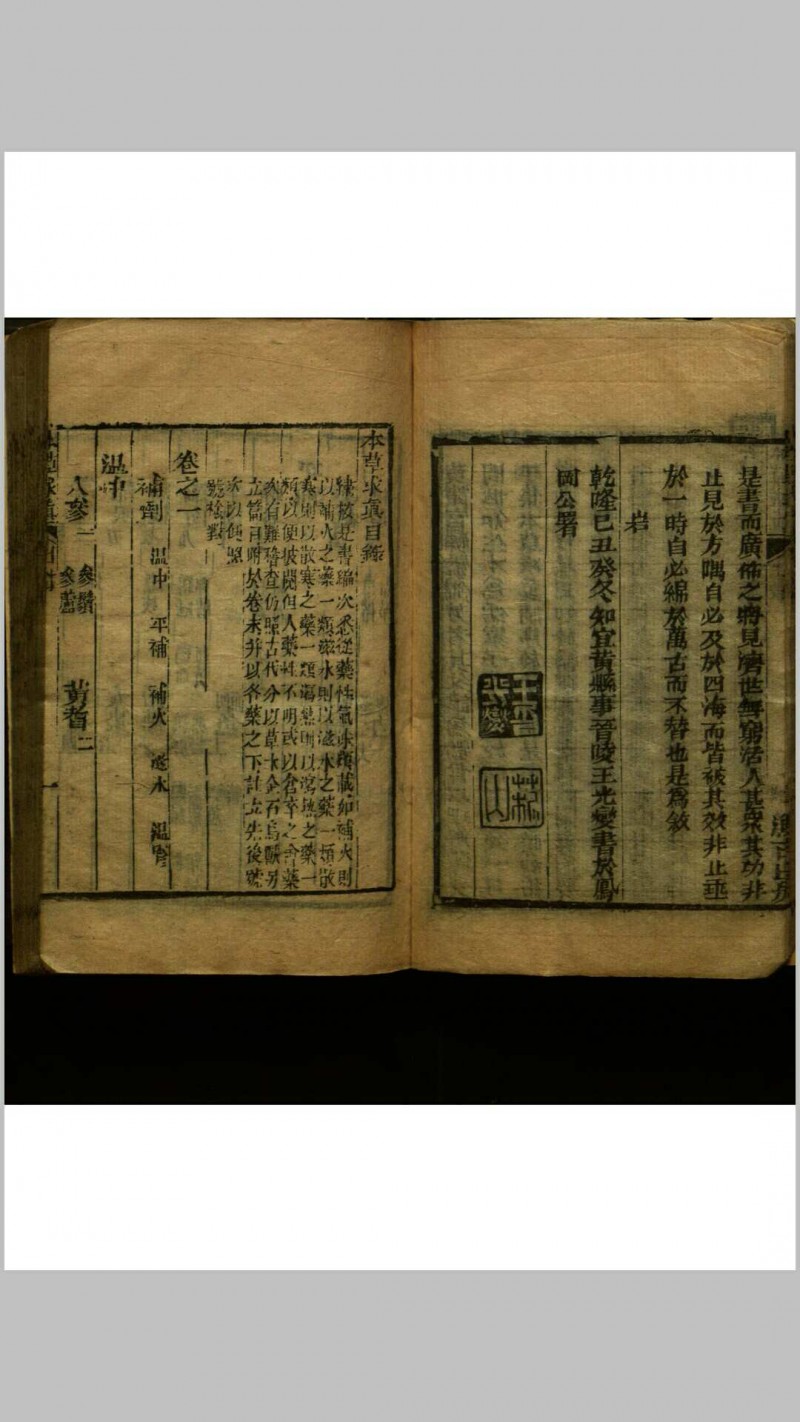 是書而廣佈之將見濟世無窮活人甚衆其功非
止見於方隅自必及於四海而皆被其效非止垂
於一時自必綿於萬古而不替也是爲敘
旹
乾隆己丑癸冬知宜黃縣事晉陵王光燮書於鳳
岡公署
本草求真目錄
繡按是書編次悉從藥性氣味類載如補火則
以補火之藥一類滋水則以滋水之藥一類散
寒則以散寒之藥一類瀉熱則以瀉熱之藥一
類以便披閱但人藥性不明或以倉卒之會藥
味有難瑧查仍照古代分以草木金石鳥獸另
立篇目附於卷末并以各藥之下註立先後號
次以便照
號檢對
卷之一
補劑 溫中 平補 補火 滋水 溫腎
溫中
人參一 參鬚 參蘆 黃耆二
本草求真 目錄 一